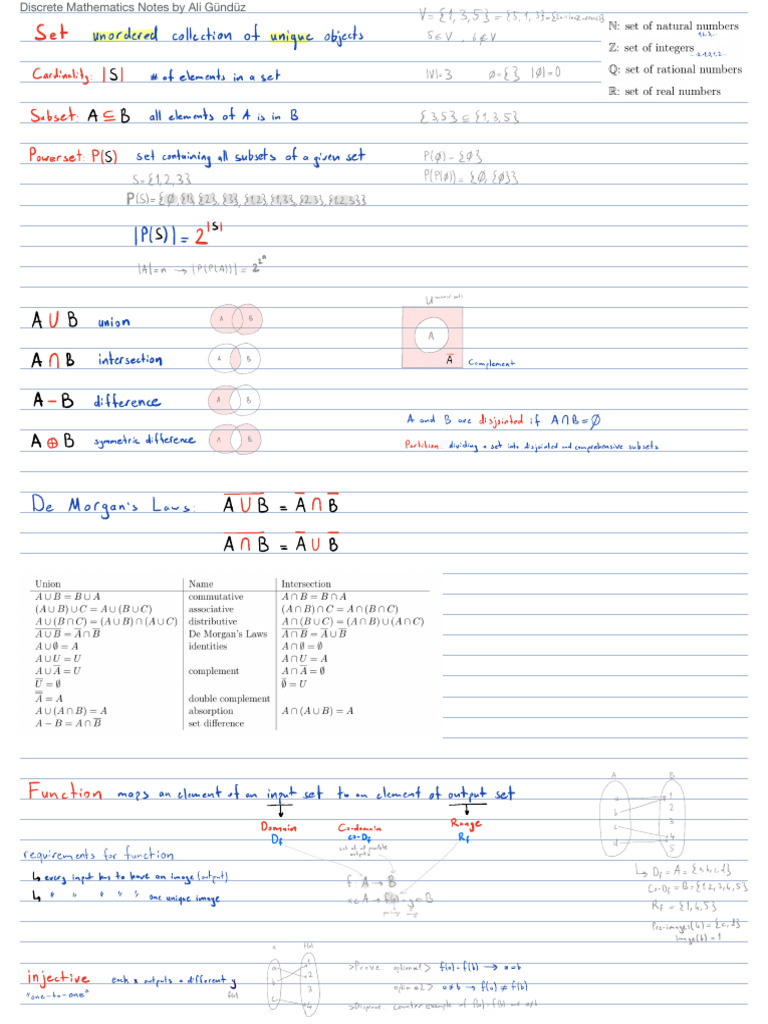 Discrete Mathematics Notes by Ali Gündüz
Set unordered collection of unique objects
V = {1,3,5} = {5,1,3} =
5 ∈ V , 6 ∉ V
ℕ: set of natural numbers
1,2,3..
ℤ: set of integers
ℚ: set of rational numbers
ℝ: set of real numbers
Cardinality: |S| # of elements in a set
|V| = 3 ∅ = { } |∅| = 0
Subset: A ⊆ B all elements of A is in B
{3,5} ⊆ {1,3,5}
Powerset: P(S) set containing all subsets of a given set
P(∅) = {∅}
P(P(∅)) = {∅, {∅}}
S = {1,2,3}
P(S) = {∅, {1}, {2}, {3}, {1,2}, {1,3}, {2,3}, {1,2,3}}
|P(S)| = 2^|S|
|A| = n → |P(P(A))| = 2^2^n
A ∪ B union
A B
U universal set
A
Ā Complement
A ∩ B intersection
A B
A − B difference
A B
A and B are disjointed if A ∩ B = ∅
A ⊕ B symmetric difference
A B
Partition: dividing a set into disjointed and comprehensive subsets
De Morgan's Laws: A̅ ̅∪̅ ̅B̅ = A̅ ∩ B̅
A̅ ̅∩̅ ̅B̅ = A̅ ∪ B̅
Union Name Intersection
A ∪ B = B ∪ A commutative A ∩ B = B ∩ A
(A ∪ B) ∪ C = A ∪ (B ∪ C) associative (A ∩ B) ∩ C = A ∩ (B ∩ C)
A ∪ (B ∩ C) = (A ∪ B) ∩ (A ∪ C) distributive A ∩ (B ∪ C) = (A ∩ B) ∪ (A ∩ C)
A̅ ̅∪̅ ̅B̅ = A̅ ∩ B̅ De Morgan's Laws A̅ ̅∩̅ ̅B̅ = A̅ ∪ B̅
A ∪ ∅ = A identities A ∩ ∅ = ∅
A ∪ U = U A ∩ U = A
A ∪ A̅ = U complement A ∩ A̅ = ∅
U̅ = ∅ ∅̅ = U
A̿ = A double complement
A ∪ (A ∩ B) = A absorption A ∩ (A ∪ B) = A
A − B = A ∩ B̅ set difference
Function maps an element of an input set to an element of output set
Domain Co-domain Range
D_f co-D_f R_f
set of all possible outputs
A B
a 1
b 2
c 3
d 4
5
requirements for function
↳ every input has to have an image (output)
↳ " " " " " one unique image
f: A → B
x ∈ A → f(x) = y ∈ B
↳ D_f = A = {a,b,c,d}
Co-D_f = B = {1,2,3,4,5}
R_f = {1,4,5}
Pre-images(4) = {c,d}
image(b) = 1
injective each x outputs a different y
"one-to-one" f(x)
x f(x)
a 1
b 2
c 3
4
>Prove: option 1> f(a) = f(b) → a = b
option 2> a ≠ b → f(a) ≠ f(b)
>Disprove: counter example of f(a) = f(b) but a≠b